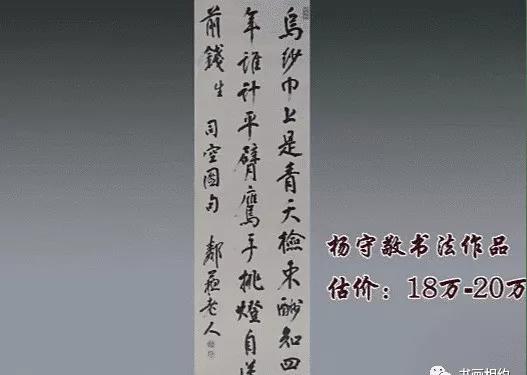 烏紗巾上是青天檢束酬知四
年誰計平臂鷹手挑燈自送
前錢 生 司空圖句 鄰蘇老人
杨守敬书法作品
估价：18万-20万